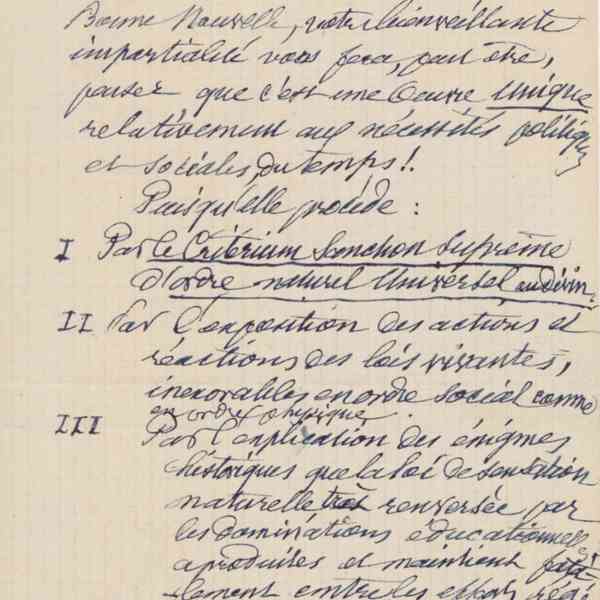 Bonne Nouvelle, votre bienveillante
impartialité vous fera, peut être,
penser que c'est une Oeuvre Unique
relativement aux nécessités politiques
et sociales du temps!.
Puisqu'elle procède :
I Par le Critérium Sanction Suprême
d'ordre naturel Universel ou Divin.
II Par l'exposition des actions et
réactions des lois vivantes,
inexorables en ordre social comme
en ordre physique.
III Par l'explication des énigmes
historiques que la loi de sensation
naturelle très renversée par
les dominations éducationnelles
a produites et maintient
entre les